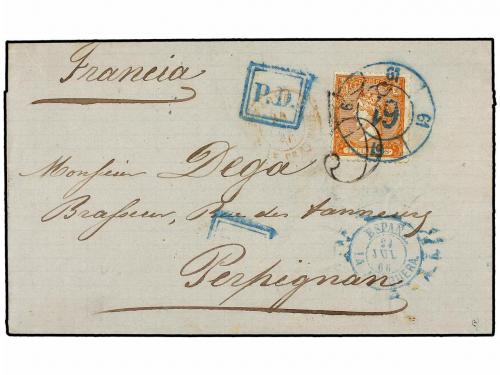 Francia
P.D.
61
19
61
19
Monsieur Dega
Brasseur, Rue des tanneurs
Perpignan
ESPAÑA
21
JUL
66